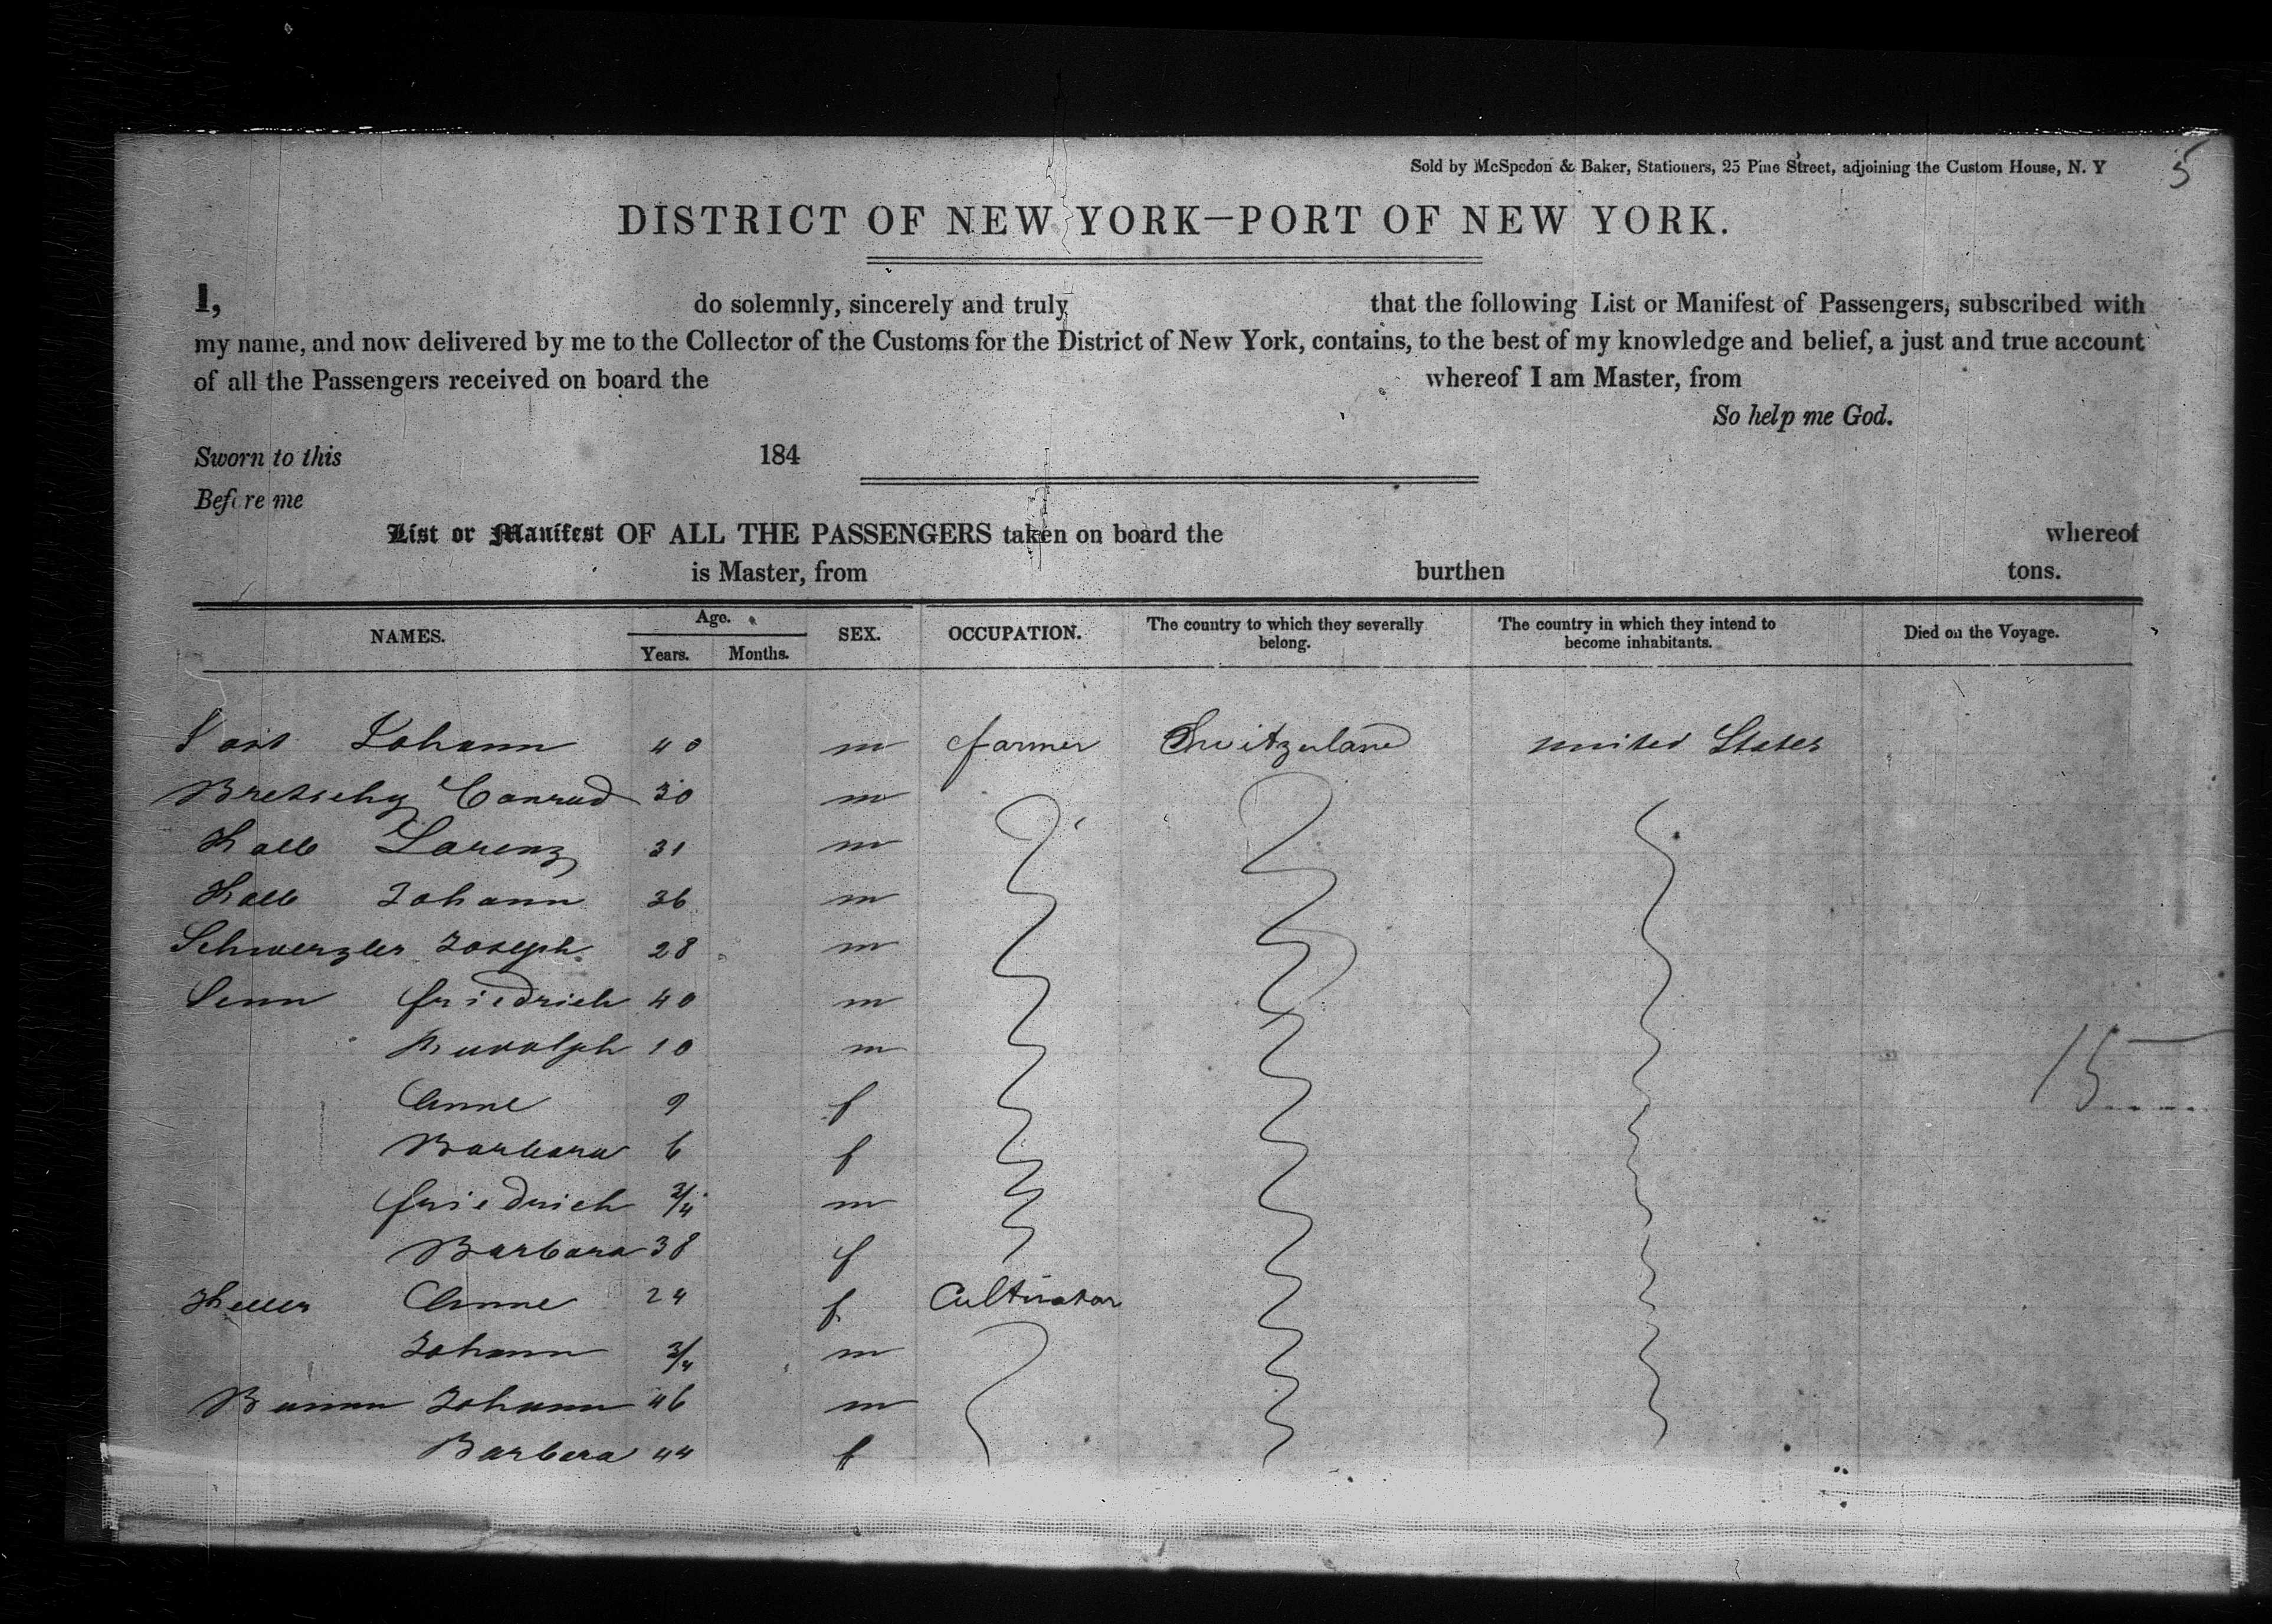 Sold by McSpedon & Baker, Stationers, 25 Pine Street, adjoining the Custom House, N. Y
5
DISTRICT OF NEW YORK—PORT OF NEW YORK.
I, do solemnly, sincerely and truly that the following List or Manifest of Passengers, subscribed with
my name, and now delivered by me to the Collector of the Customs for the District of New York, contains, to the best of my knowledge and belief, a just and true account
of all the Passengers received on board the whereof I am Master, from
So help me God.
Sworn to this 184
Before me
List or Manifest OF ALL THE PASSENGERS taken on board the whereof
is Master, from burthen tons.
NAMES. Age. Years. Months. SEX. OCCUPATION. The country to which they severally belong. The country in which they intend to become inhabitants. Died on the Voyage.
Johann 40 m farmer Switzerland united States
Bretschy Conrad 30 m
Kalb Lorenz 31 m
Kalb Johann 36 m
Schwerzler Joseph 28 m
Senn friedrich 40 m
Rudolph 10 m
Anne 9 f
Barbara 6 f
friedrich 3/4 m
Barbara 38 f
Keller Anne 24 f Cultivator
Johann 3/4 m
Johann 46 m
Barbara 44 f
15